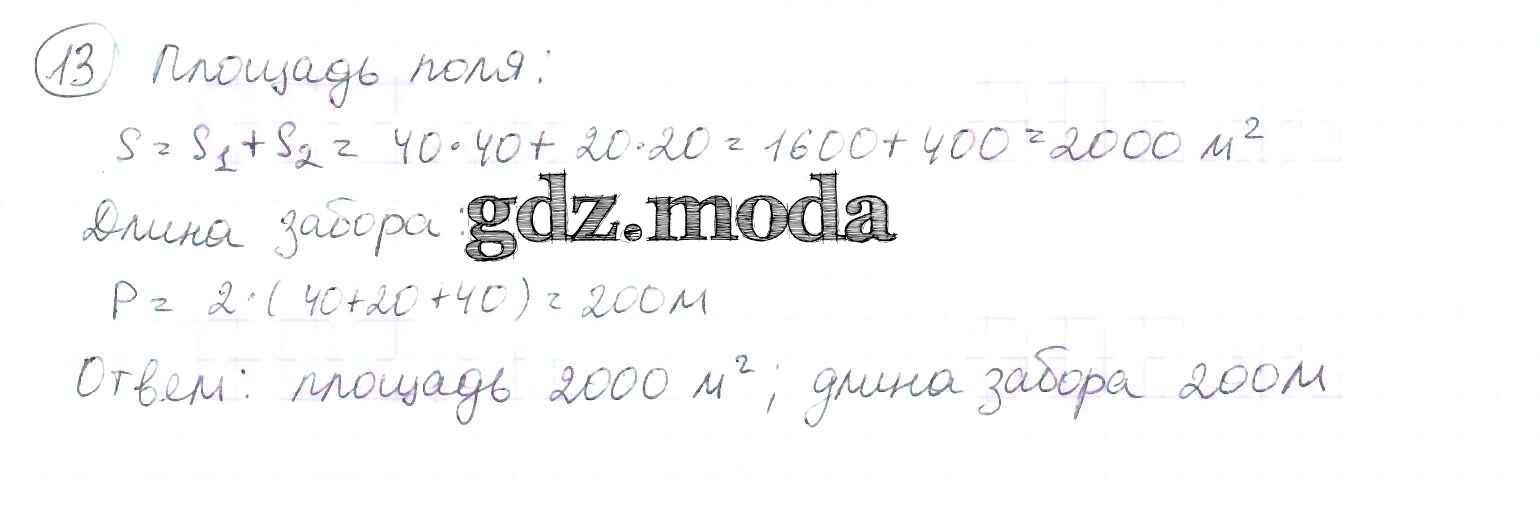 13 Площадь поля:
S = S₁ + S₂ = 40·40 + 20·20 = 1600 + 400 = 2000 м²
Длина забора: gdz.moda
P = 2·(40+20+40) = 200м
Ответ: площадь 2000 м²; длина забора 200м